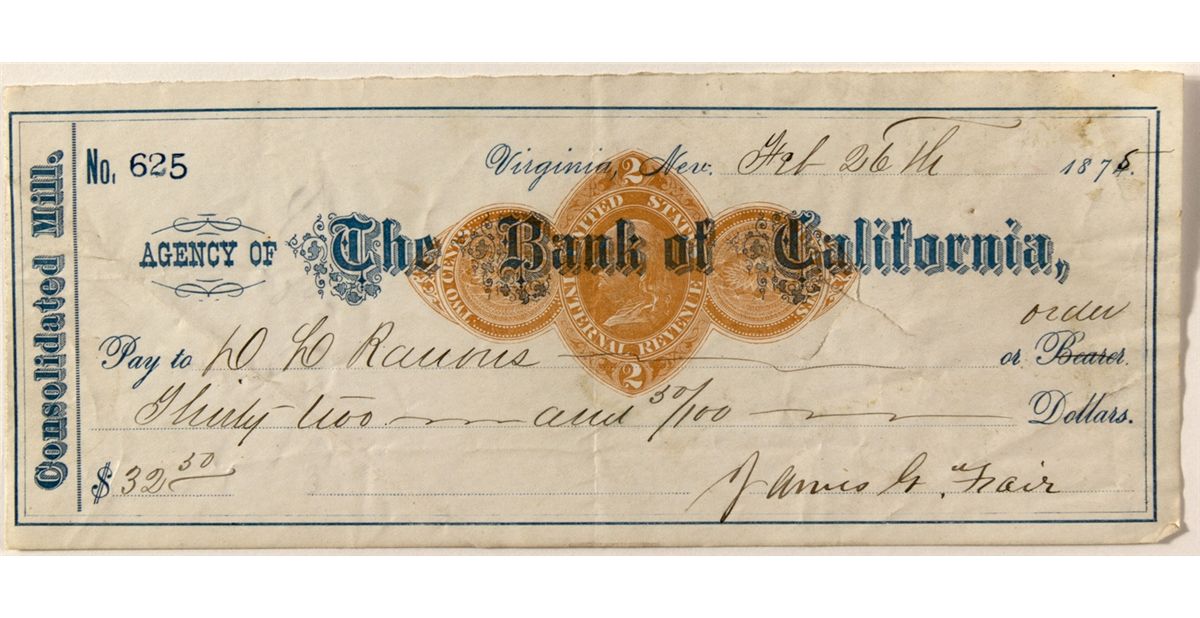 Consolidated Mill.
No. 625
Virginia, Nev. Feb 26th 1875.
AGENCY OF The Bank of California,
2
UNITED STATES
INTERNAL REVENUE
2
TWO CENTS
order
Pay to D L or Bearer.
Thirty two and 50/100 Dollars.
$ 32 50
James G. Fair